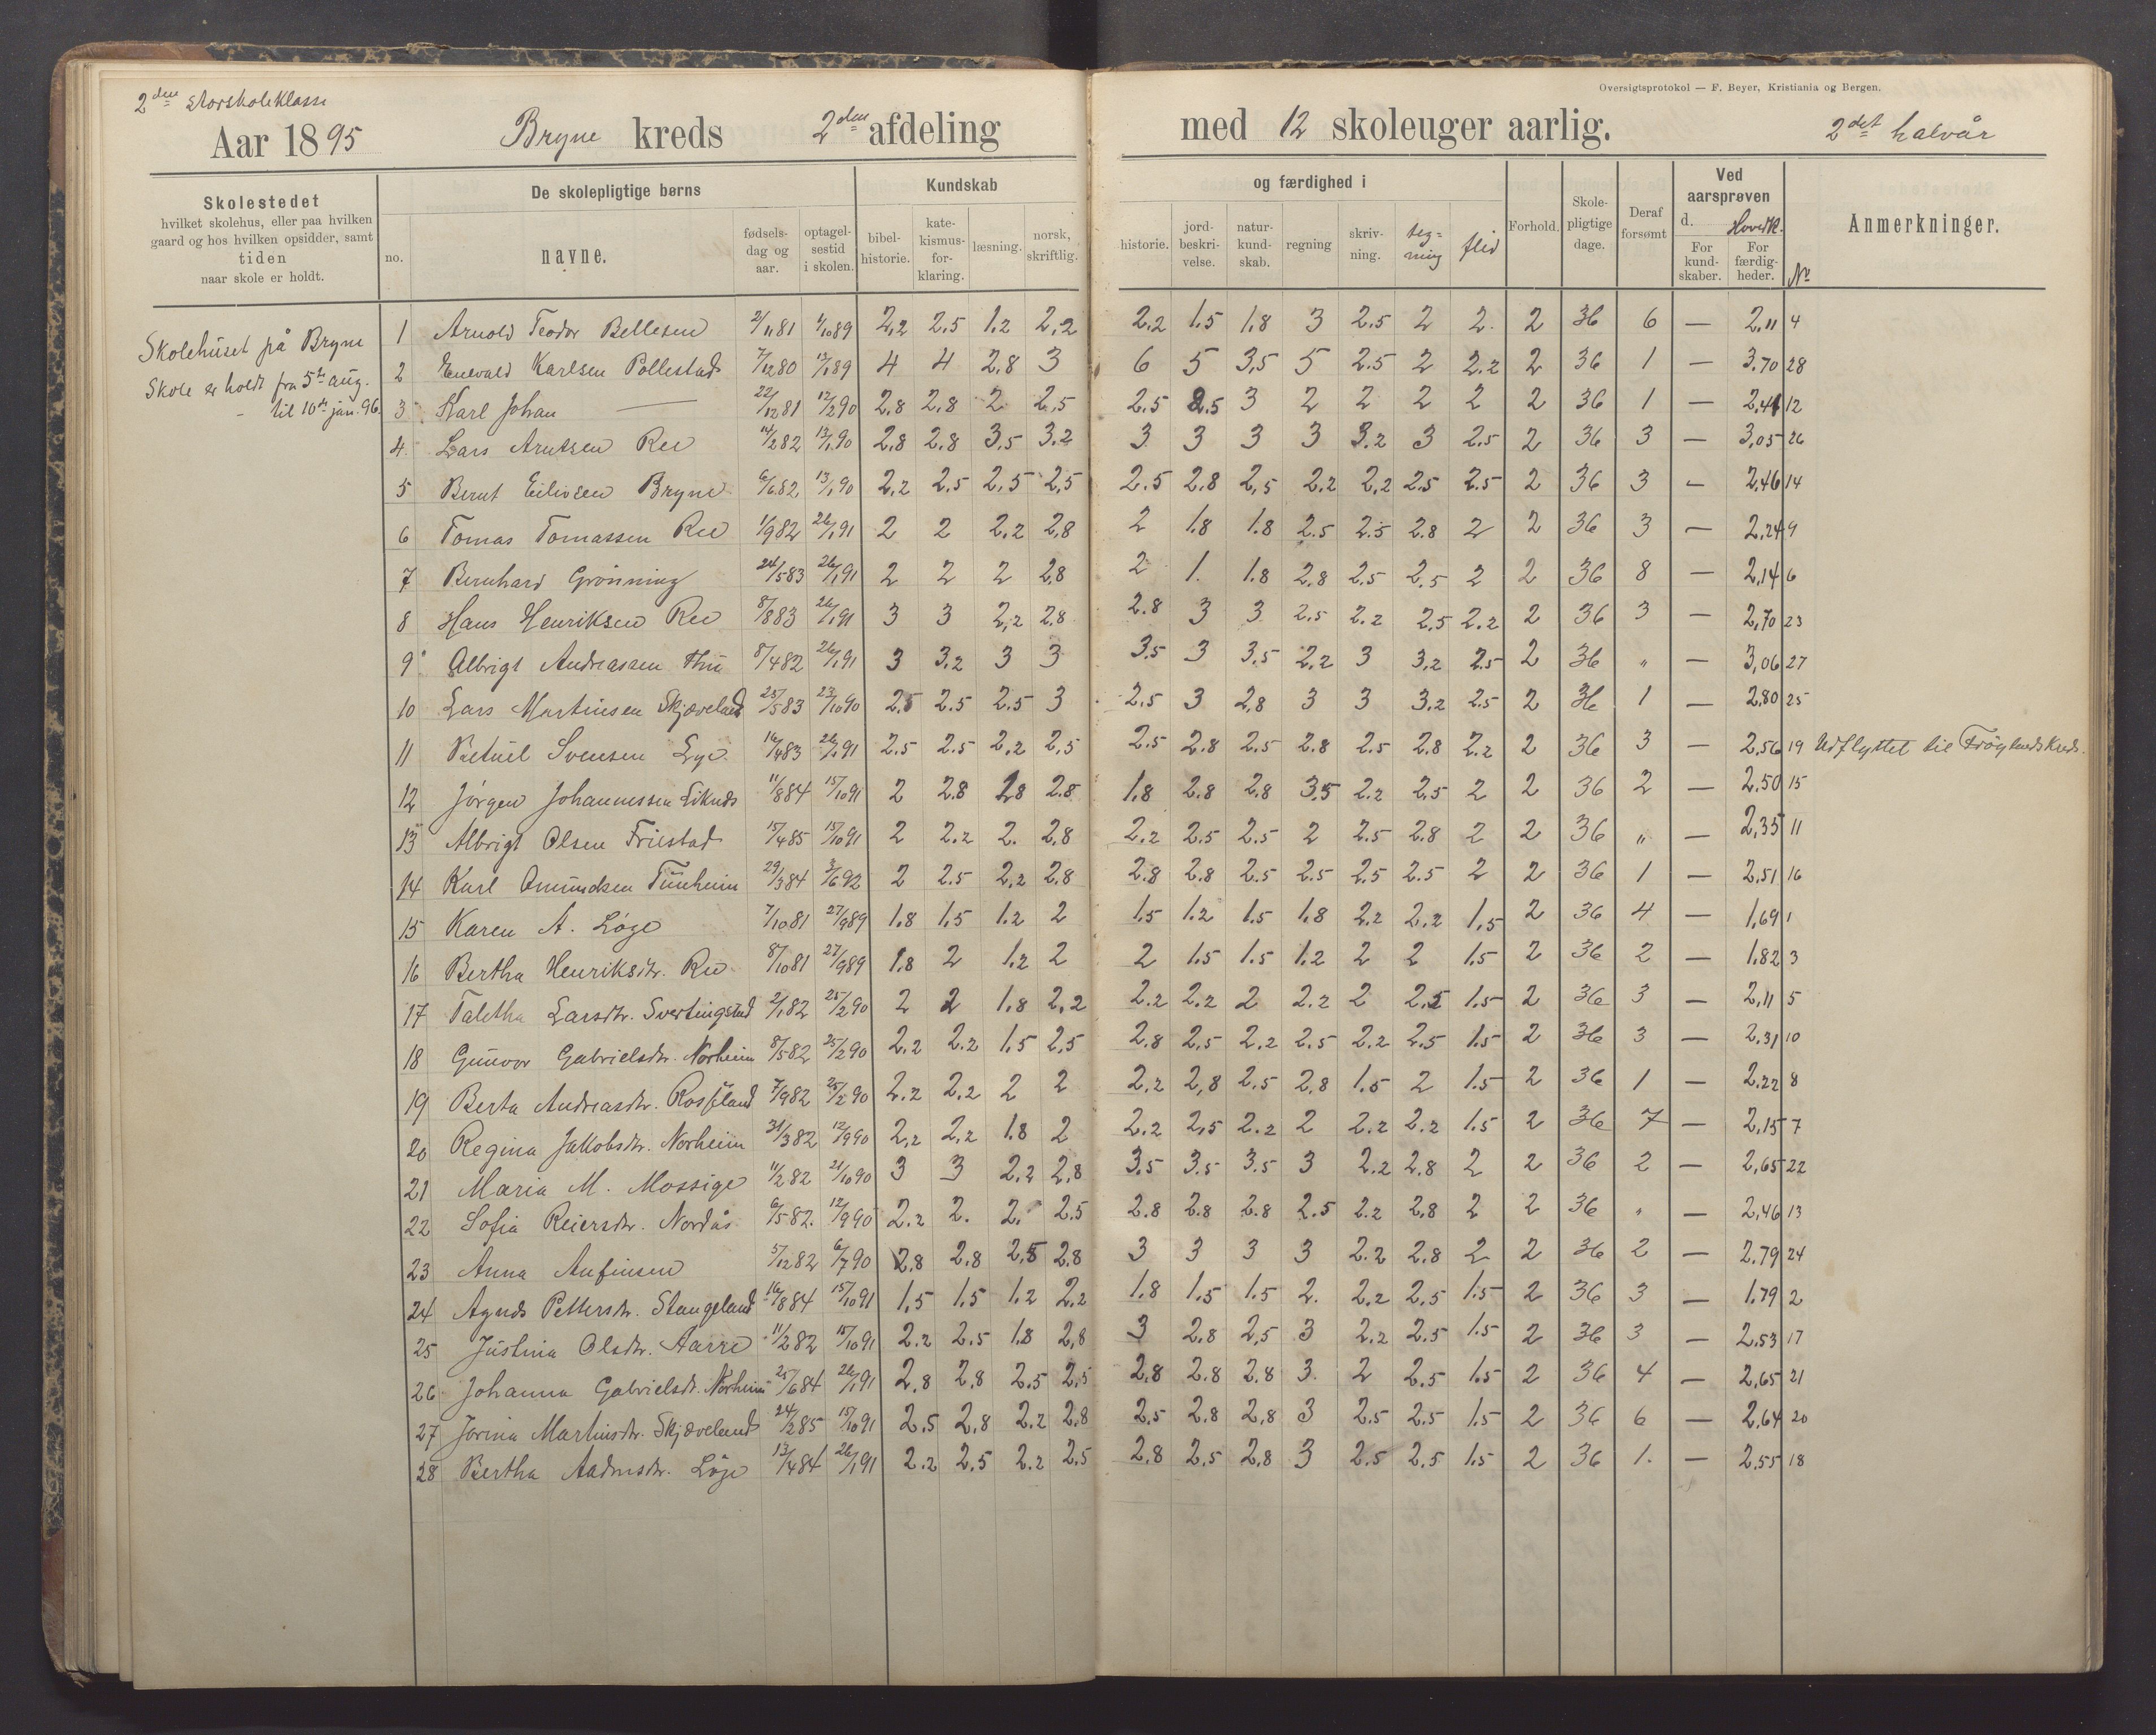 Oversigtsprotokol — F. Beyer, Kristiania og Bergen.
2den storskoleklasse
Aar 1895 Bryne kreds 2den afdeling med 12 skoleuger aarlig. 2det halvår
Skolestedet hvilket skolehus, eller paa hvilken gaard og hos hvilken opsidder, samt tiden naar skole er holdt.
De skolepligtige børns
no. navne. fødsels-dag og aar. optagel-sestid i skolen.
Kundskab og færdighed i
bibel-historie. kate-kismus-for-klaring. læsning. norsk, skriftlig. historie. jord-beskri-velse. natur-kund-skab. regning skriv-ning. teg-ning flid
Forhold. Skole-pligtige dage. Deraf forsømt
Ved aarsprøven d. Hovedk.
For kund-skaber. For færdig-heder. Nr
Anmerkninger.
Skolehuset på Bryne
Skole er holdt fra 5te aug.
- til 10de jan. 96.
1 Arnold Teodor Bellesen 2/11 81 1/10 89 2,2 2.5 1.2 2,2 2.2 1.5 1.8 3 2.5 2 2. 2 36 6 — 2,11 4
2 Enevald Karlsen Pollestad 7/12 80 13/1 89 4 4 2,8 3 6 5 3,5 5 2.5 2 2.2 2 36 1 — 3.70 28
3 Karl Johan — 22/12 81 12/2 90 2,8 2,8 2 2,5 2.5 2.5 3 2 2 2 2 2 36 1 — 2,41 12
4. Lars Arntsen Ree 14/2 82 13/1 90 2,8 2,8 3,5 3,2 3 3 3 3 3.2 3 2.5 2 36 3 — 3,05 26
5 Bernt Eilivsen Bryne 6/6 82 13/1 90 2,2 2.5 2,5 2,5 2.5 2.8 2,5 2.2 2,2 2.5 2.5 2 36 3 — 2,46 14
6 Tomas Tomassen Ree 1/9 82 26/1 91 2 2 2,2 2,8 2 1.8 1.8 2.5 2.5 2.8 2 2 36 3 — 2,24 9
7 Bernhard Grönning 24/5 83 26/1 91 2 2 2 2,8 2 1. 1.8 2.8 2.5 2.5 2 2 36 8 — 2,14 6
8 Hans Henriksen Ree 8/8 83 26/1 91 3 3 2,2 2.8 2.8 3 3 2.5 2.2 2.5 2.2 2 36 3 — 2,70 23
9 Albrigt Andreassen Thu 8/4 82 26/1 91 3 3.2 3 3 3.5 3 3.5 2.2 3 3.2 2.5 2 36 " — 3,06 27
10 Lars Martinsen Skjæveland 25/5 83 23/10 90 2.5 2.5 2.5 3 2.5 3 2,8 3 3 3.2 2.5 2 36 1 — 2,80 25
11 Betuel Svensen Lye 16/4 83 26/1 91 2.5 2.5 2,2 2,5 2.5 2.8 2.5 2.8 2.5 2.8 2.2 2 36 3 — 2,56 19 Udflyttet til Frøylands kreds.
12 Jörgen Johannessen Liknes 11/8 84 15/10 91 2 2.8 1.8 2.8 1.8 2.8 2.8 3.5 2.2 2.5 2 2 36 2 — 2.50 15
13 Albrigt Olsen Friestad 15/4 85 15/10 91 2 2.2 2. 2,8 2.2 2.5 2.5 2 2.5 2.8 2 2 36 " — 2,35 11
14 Karl Omundsen Tunheim 29/3 84 3/6 92 2 2.5 2,2 2,8 2.8 2.8 2.5 2.5 2,5 2.5 2 2 36 1 — 2,51 16
15 Karen A. Löge 7/10 81 27/9 89 1.8 1,5 1.2 2 1.5 1.2 1.5 1.8 2.2 2,2 1,5 2 36 4 — 1,69 1
16 Bertha Henriksdtr. Ree 8/10 81 27/9 89 1.8 2 1.2 2 2 1.5 1.5 1.2 2 2 1.5 2 36 2 — 1.82 3
17 Taletha Larsdtr. Svertingstad 2/1 82 25/2 90 2 2 1.8 2,2 2.2 2.2 2 2.2 2 2.5 1.5 2 36 3 — 2,11 5
18 Gunvor Gabrielsdtr. Norheim 8/5 82 25/2 90 2.2 2.2 1.5 2,5 2.8 2,5 2.2 2.5 2.2 2.5 1.5 2 36 3 — 2.31 10
19 Berta Andreasdtr. Rosseland 7/9 82 25/2 90 2.2 2,2 2 2 2.2 2,8 2.5 2,8 1.5 2 1.5 2 36 1 — 2.22 8
20 Regina Jakobsdtr. Norheim 31/3 82 12/9 90 2,2 2,2 1.8 2 2.2 2,5 2.2 2 2.2 2.2 1.5 2 36 7 — 2,15 7
21 Maria M. Mossige 11/2 82 21/10 90 3 3 2.2 2,8 3.5 3.5 3.5 3 2.2 2.8 2 2 36 2 — 2,65 22
22 Sofia Reiersdtr. Nordås 6/5 82. 12/9 90 2.2 2. 2. 2.5 2.8 2.8 2.8 2.5 2.2 2,8 2 2 36 " — 2,46 13
23 Anna Anfinsen 5/12 82 6/7 90 2,8 2.8 2,5 2.8 3 3 3 3 2.2 2.8 2 2 36 2 — 2.79 24
24 Agnes Pettersdtr. Stangeland 16/8 84 15/10 91 1,5 1.5 1.2 2.2 1.8 1.5 1.5 2. 2.2 2,5 1.5 2 36 3 — 1.79 2
25 Justina Olsdtr. Aarre 11/2 82 15/10 91 2.2 2.5 1.8 2,8 3 2.8 2,5 3 2.2 2.5 1.5 2 36 3 — 2.53 17
26 Johanna Gabrielsdtr. Norheim 25/6 84 26/1 91 2,8 2,8 2.5 2,5 2,8 2.8 2.8 3. 2 2.5 1.5 2 36 4 — 2,65 21
27 Jorina Martinsdtr. Skjæveland 24/2 85 15/10 91 2,5 2,8 2.2 2,8 2,5 2.8 2,8 3 2.5 2.5 1.5 2 36 6 — 2,64 20
28 Bertha Aadnesdtr. Löge 13/4 84 26/1 91 2.2 2.5 2.2 2.5 2,8 2,5 2,8 3 2.5 2.5 1.5 2 36 1. — 2.55 18